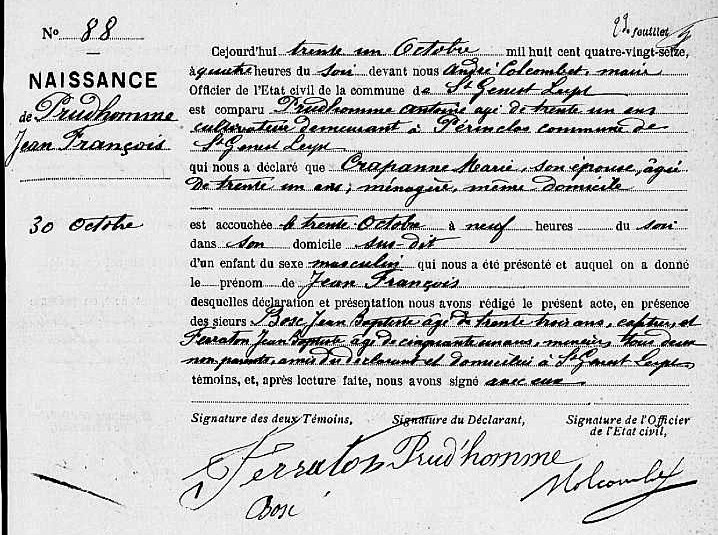 No 88
feuillet
Cejourd'hui trente un Octobre mil huit cent quatre-vingt-seize,
à quatre heures du soir devant nous André Colcombet, maire
Officier de l'Etat civil de la commune de St Genest Lerpt
NAISSANCE
de Prudhomme
Jean François
est comparu Prudhomme Antoine agé de trente un ans
cultivateur demeurant à commune de
St Genest Lerpt
qui nous a déclaré que Crapanne Marie, son épouse, âgée
De trente un ans, ménagère, même domicile
30 Octobre
est accouchée le trente Octobre à neuf heures du soir
dans son domicile sus-dit
d'un enfant du sexe masculin qui nous a été présenté et auquel on a donné
le prénom de Jean François
desquelles déclaration et présentation nous avons rédigé le présent acte, en présence
des sieurs Bosc Jean Baptiste âgé de trente trois ans, et
Ferraton Jean Baptiste âgé de cinquante un ans, mineur, tous deux
non parents, amis du déclarant et domiciliés à St Genest Lerpt
témoins, et, après lecture faite, nous avons signé avec eux
Signature des deux Témoins, Signature du Déclarant, Signature de l'Officier
de l'Etat civil,
Ferraton Prud'homme
Bosc